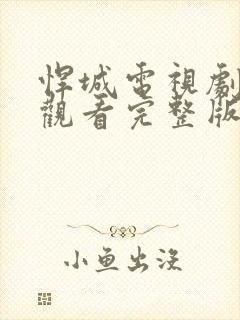 悍城電視劇
觀看完整版
小魚出沒